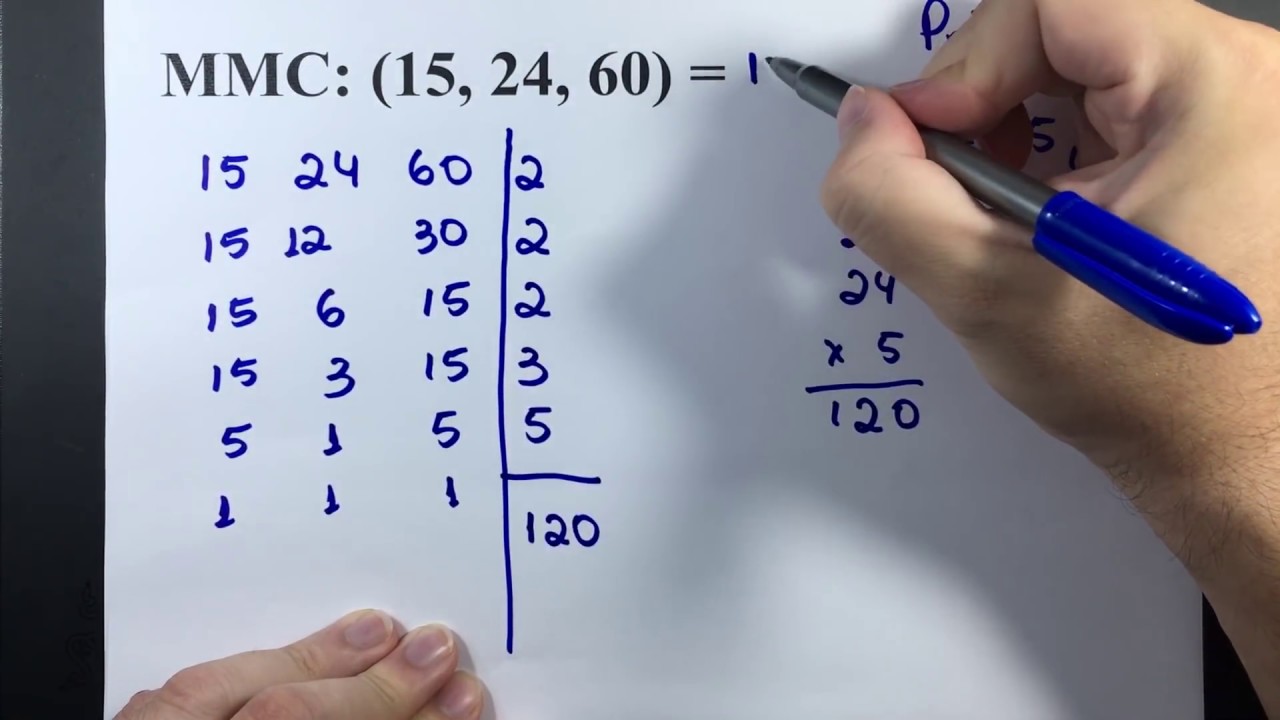 MMC: (15, 24, 60) = 1
15 24 60 2
15 12 30 2
15 6 15 2
15 3 15 3
5 1 5 5
1 1 1
120
5,
24
x 5
120